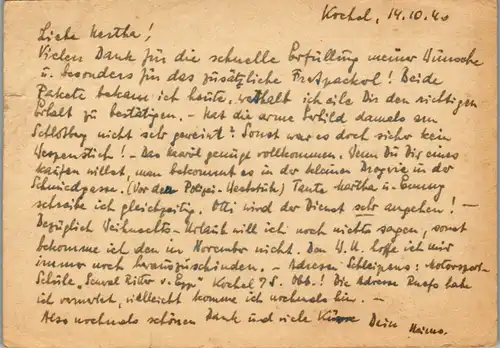 Kochel, 14.10.40
Liebe Hertha!
Vielen Dank für die schnelle Erfüllung meiner Wünsche
u. besonders für das zusätzliche Freßpackerl! Beide
Pakete bekam ich heute, weshalb ich eile Dir den richtigen
Erhalt zu bestätigen. - Hat die arme Erhild damals am
Schloßberg nicht sehr geweint? Sonst war es doch sicher kein
Wespenstich! - Das genügt vollkommen. Wenn Du Dir eines
kaufen willst, man bekommt es in der kleinen Drogerie in der
Schmiedgasse. (Vor dem Polizei- ) Tante Martha u.
schreibe ich gleichzeitig. Otti wird der Dienst sehr angehen! -
Bezüglich Weihnachts-Urlaub will ich noch nichts sagen, sonst
bekomme ich den im November nicht. Den W.U. hoffe ich mir
immer noch herauszuschinden. - Adresse : Motorsport-
Schule "General Ritter v. Epp" Kochel 75 Obb.! Die Adresse habe
ich vermerkt, vielleicht komme ich nochmals hin. -
Also nochmals schönen Dank und viele Küsse Dein Heino.